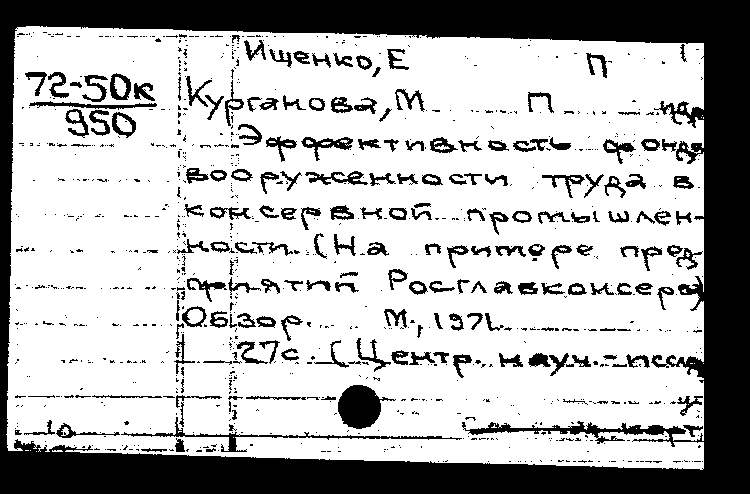 Ищенко, Е П
72-50к
950
Курганова, М П
Эффективность фондо
вооруженности труда в
консервной промышлен-
ности. (На примере пред-
приятий Росглавконсерв)
Обзор. М., 1971.
27с. (Центр. науч.-иссл
10